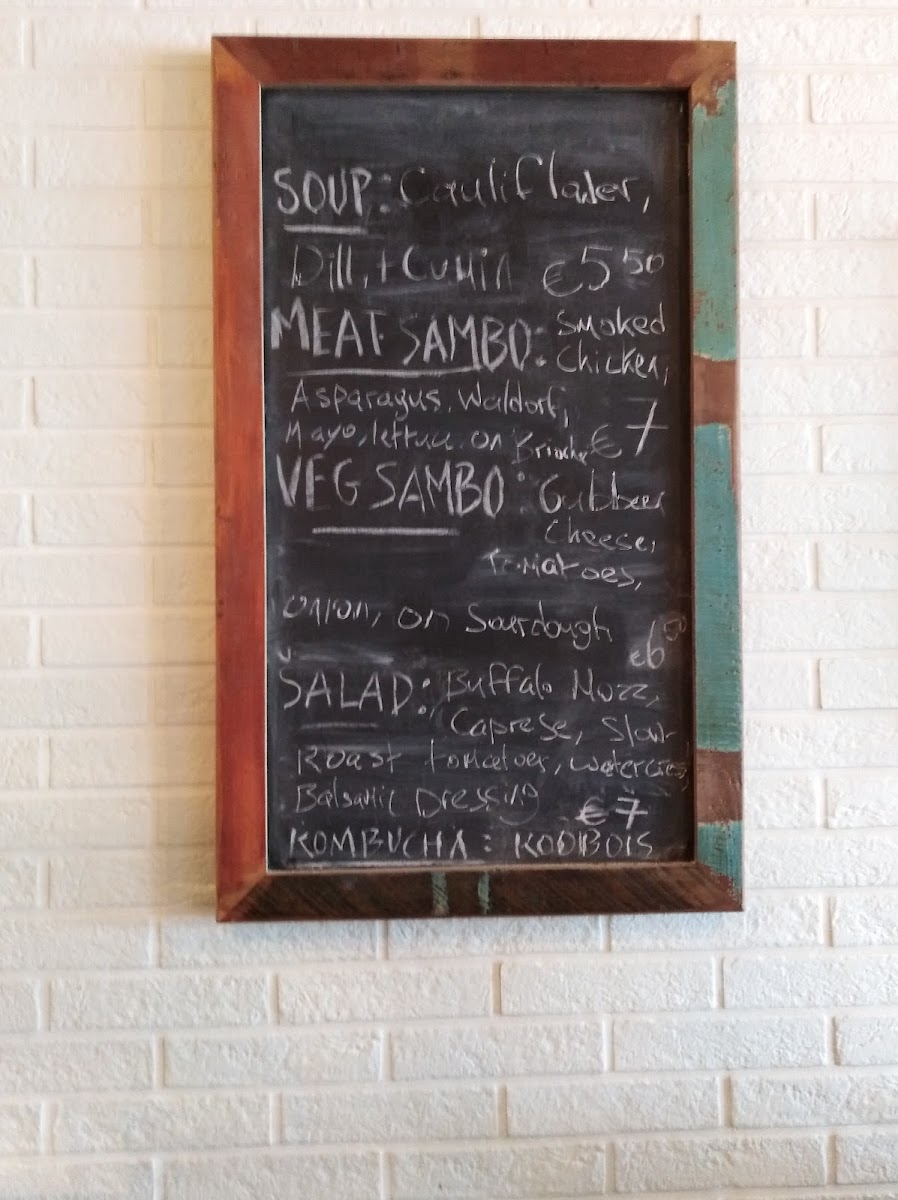 SOUP: Cauliflower,
Dill, + Cumin €5 50
MEAT SAMBO: Smoked
Chicken,
Asparagus, Waldorf,
Mayo, lettuce on Brioche €7
VEG SAMBO: Gubbeen
Cheese,
Tomatoes,
Onion, on Sourdough
€6 50
SALAD: Buffalo Mozz,
Caprese, Slow-
Roast tomatoes, watercress,
Balsamic Dressing €7
KOMBUCHA: ROOIBOIS